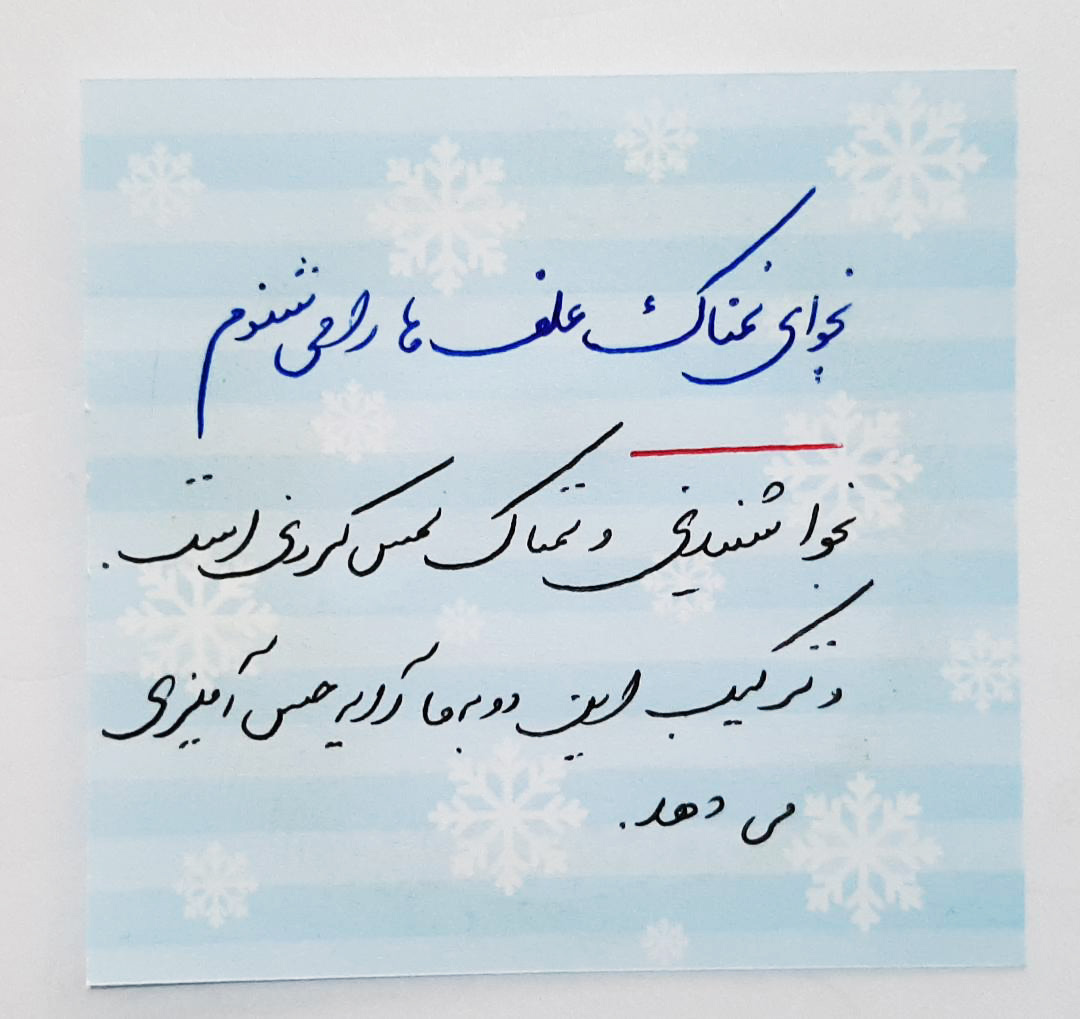 نجوای نمناکٔ علف ها را می شنوم
نجوا شنیدنی و نمناک لمس کردنی است.
و ترکیب این دو به ما آرایه حس آمیزی
می دهد.